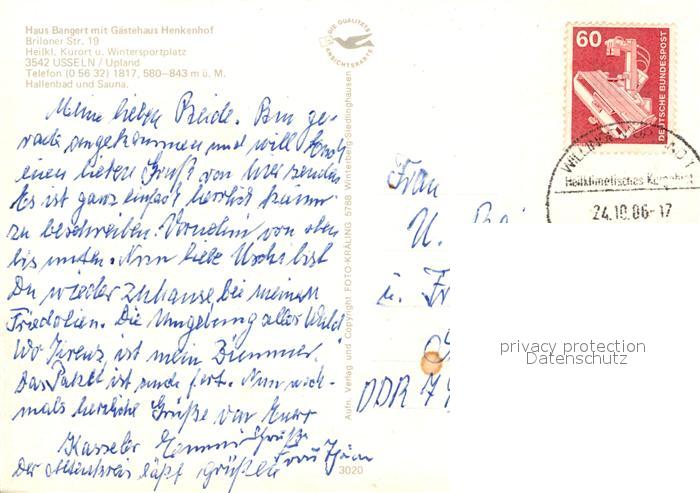 Haus Bangert mit Gästehaus Henkenhof
Briloner Str. 19
Heilkl. Kurort u. Wintersportplatz
3542 USSELN / Upland
Telefon (0 56 32) 1817, 580–843 m ü. M.
Hallenbad und Sauna.
DIE QUALITÄTS
ANSICHTSKARTE
60
DEUTSCHE BUNDESPOST
Heilklimatisches Kurgebiet
24.10.86-17
Meine lieben Beide. Bin ge-
rade angekommen und will Euch
einen lieben Gruß von hier senden
Es ist ganz einfach herrlich kaum
zu beschreiben. Vornehm von oben
bis unten. Nun liebe Uschi bist
Du wieder zuhause bei meinem
Friedolien. Die Umgebung alles Wald
ist mein Zimmer.
Das Paket ist auch fort. Nun noch-
mals herzliche Grüße von Eurer
Kasseler
Der läßt grüßen Frau
Frau
U.
u. Fr
DDR
Aufn. Verlag und Copyright FOTO-KRÄLING 5788 Winterberg-Siedlinghausen
3020
privacy protection
Datenschutz